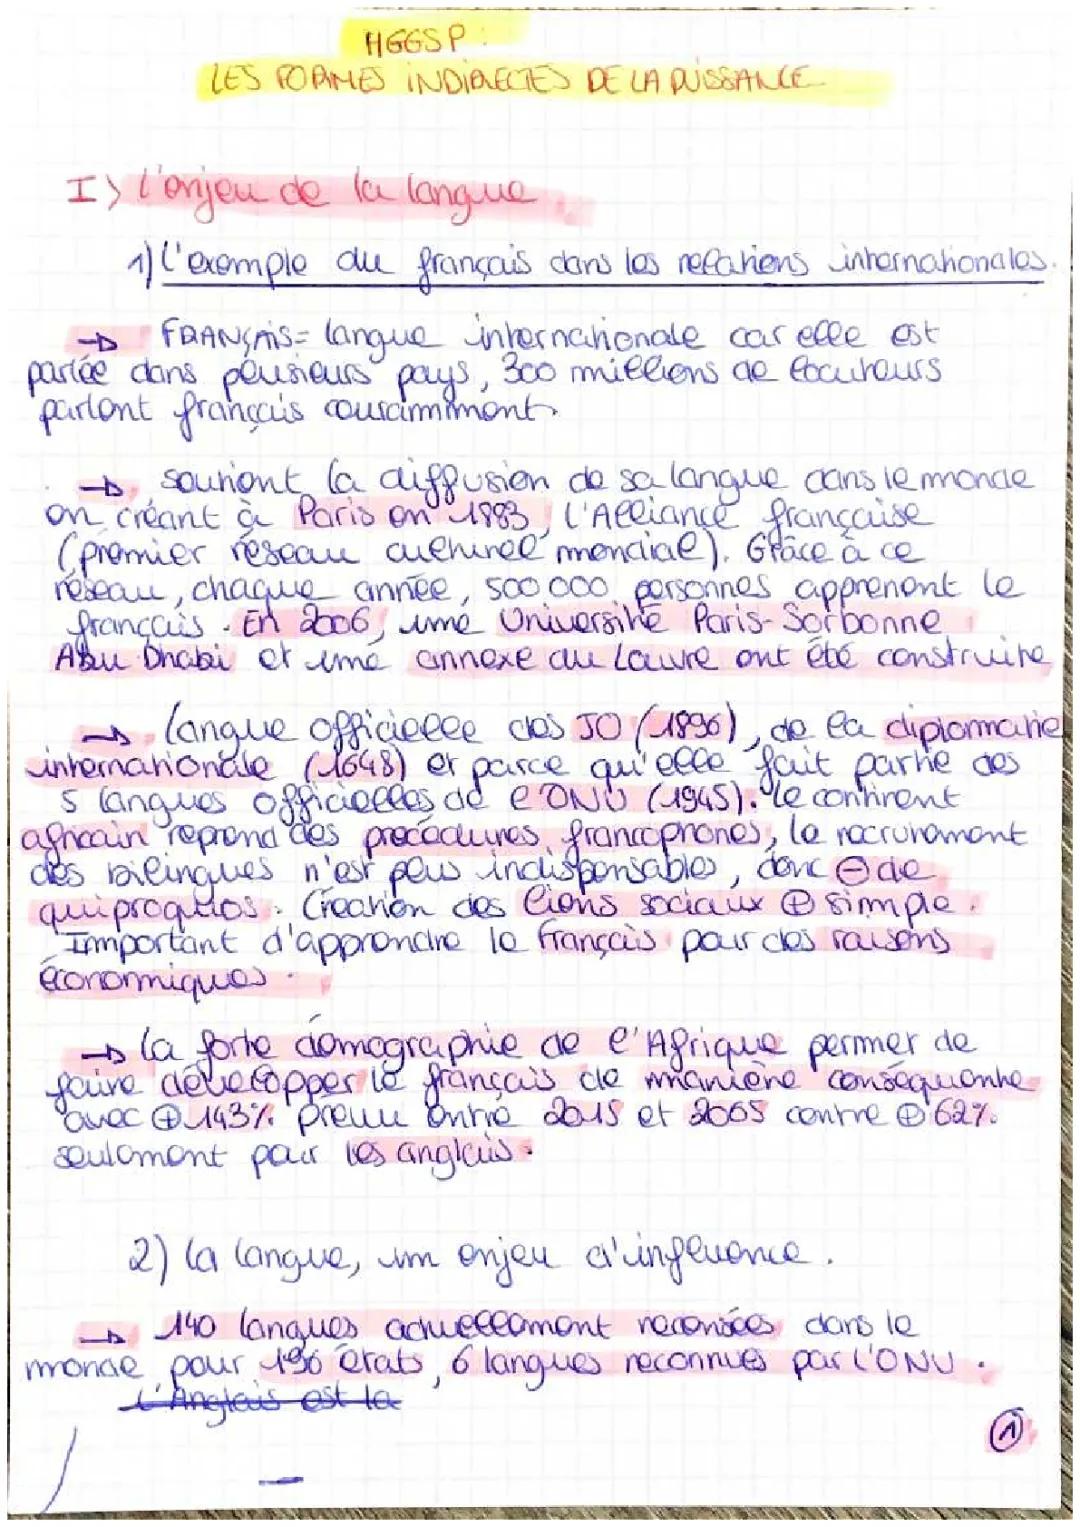 HGGSP :
LES FORMES INDIRECTES DE LA PUISSANCE
I> l'enjeu de la langue
1) L'exemple du français dans les relations internationales.
→ FRANÇAIS = langue internationale car elle est
parlée dans plusieurs pays, 300 millions de locuteurs
parlent français couramment.
→ soutient la diffusion de sa langue dans le monde
en créant à Paris en 1883, l'Alliance française
(premier réseau culturel mondial). Grâce à ce
réseau, chaque année, 500 000 personnes apprennent le
français. En 2006, une Université Paris-Sorbonne
Abu Dhabi et une annexe du Louvre ont été construite
→ langue officielle des JO (1896), de la diplomatie
internationale (1648) et parce qu'elle fait partie des
5 langues officielles de l'ONU (1945). Le continent
africain reprend des procédures francophones, le recrutement
des bilingues n'est plus indispensables, donc ⊖ de
quiproquos. Création des liens sociaux ⊕ simple.
Important d'apprendre le français pour des raisons
économiques.
→ la forte démographie de l'Afrique permet de
faire développer le français de manière conséquente
avec ⊕ 143% prévu entre 2015 et 2065 contre ⊕ 62%
seulement pour les anglais.
2) la langue, un enjeu d'influence.
→ 140 langues actuellement recensées dans le
monde pour 196 états, 6 langues reconnues par l'ONU.
L'Anglais est la
1